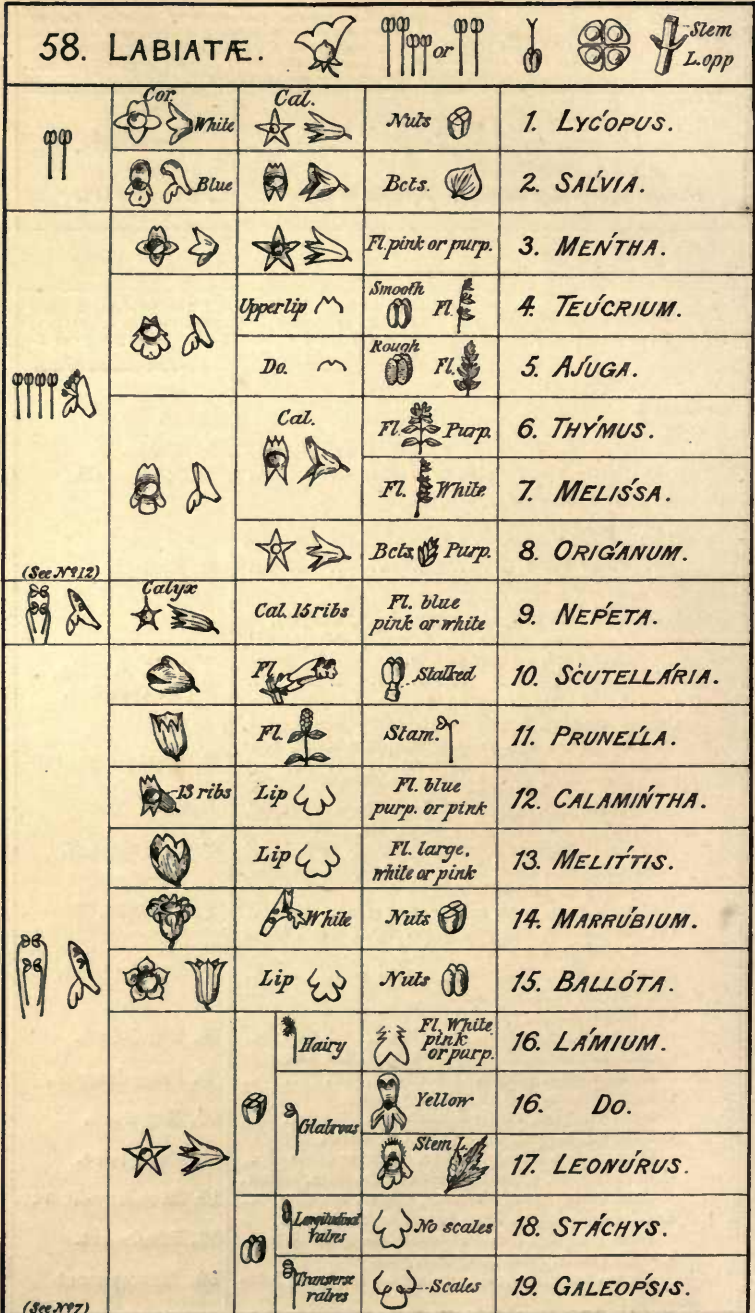 58. LABIATÆ.
or
Stem
L. opp
Cor.
White
Cal.
Nuts
1. LYCÓPUS.
Blue
Bcts.
2. SÁLVIA.
Fl. pink or purp.
3. MÉNTHA.
Upper lip
Smooth
Fl.
4. TEÚCRIUM.
Do.
Rough
Fl.
5. AJÚGA.
Cal.
Fl. Purp.
6. THÝMUS.
Fl. White
7. MELÍSSA.
Bcts. Purp.
8. ORIǴANUM.
(See Nº 12)
Calyx
Cal. 15 ribs
Fl. blue
pink or white
9. NÉPETA.
Fl.
Stalked
10. SCUTELLÁRIA.
Fl.
Stam.
11. PRUNÉLLA.
13 ribs
Lip
Fl. blue
purp. or pink
12. CALAMÍNTHA.
Lip
Fl. large,
white or pink
13. MELÍTTIS.
White
Nuts
14. MARRÚBIUM.
Lip
Nuts
15. BALLÓTA.
Hairy
Fl. White
pink
or purp.
16. LÁMIUM.
Glabrous
Yellow
16. Do.
Stem L.
17. LEONÚRUS.
Longitudinal
valves
No scales
18. STÁCHYS.
Transverse
valves
Scales
19. GALEÓPSIS.
(See Nº 7)